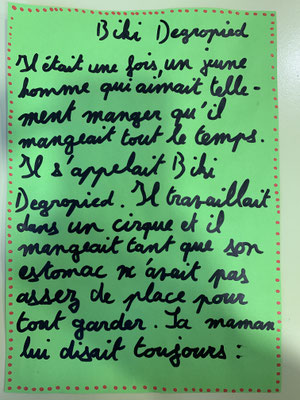 Biki Degropied
Il était une fois, un jeune
homme qui aimait telle-
ment manger qu'il
mangeait tout le temps.
Il s'appelait Biki
Degropied. Il travaillait
dans un cirque et il
mangeait tant que son
estomac n'avait pas
assez de place pour
tout garder. Sa maman
lui disait toujours :